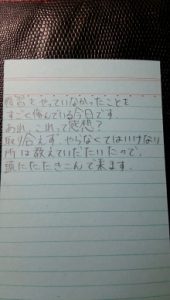 復習をやっていなかったことも
すごく悔んでいる今日です。
あれ、これって感想?
取り合えず やらなくてはいけない
所は教えていただいたので、
頭にたたきこんで来ます。